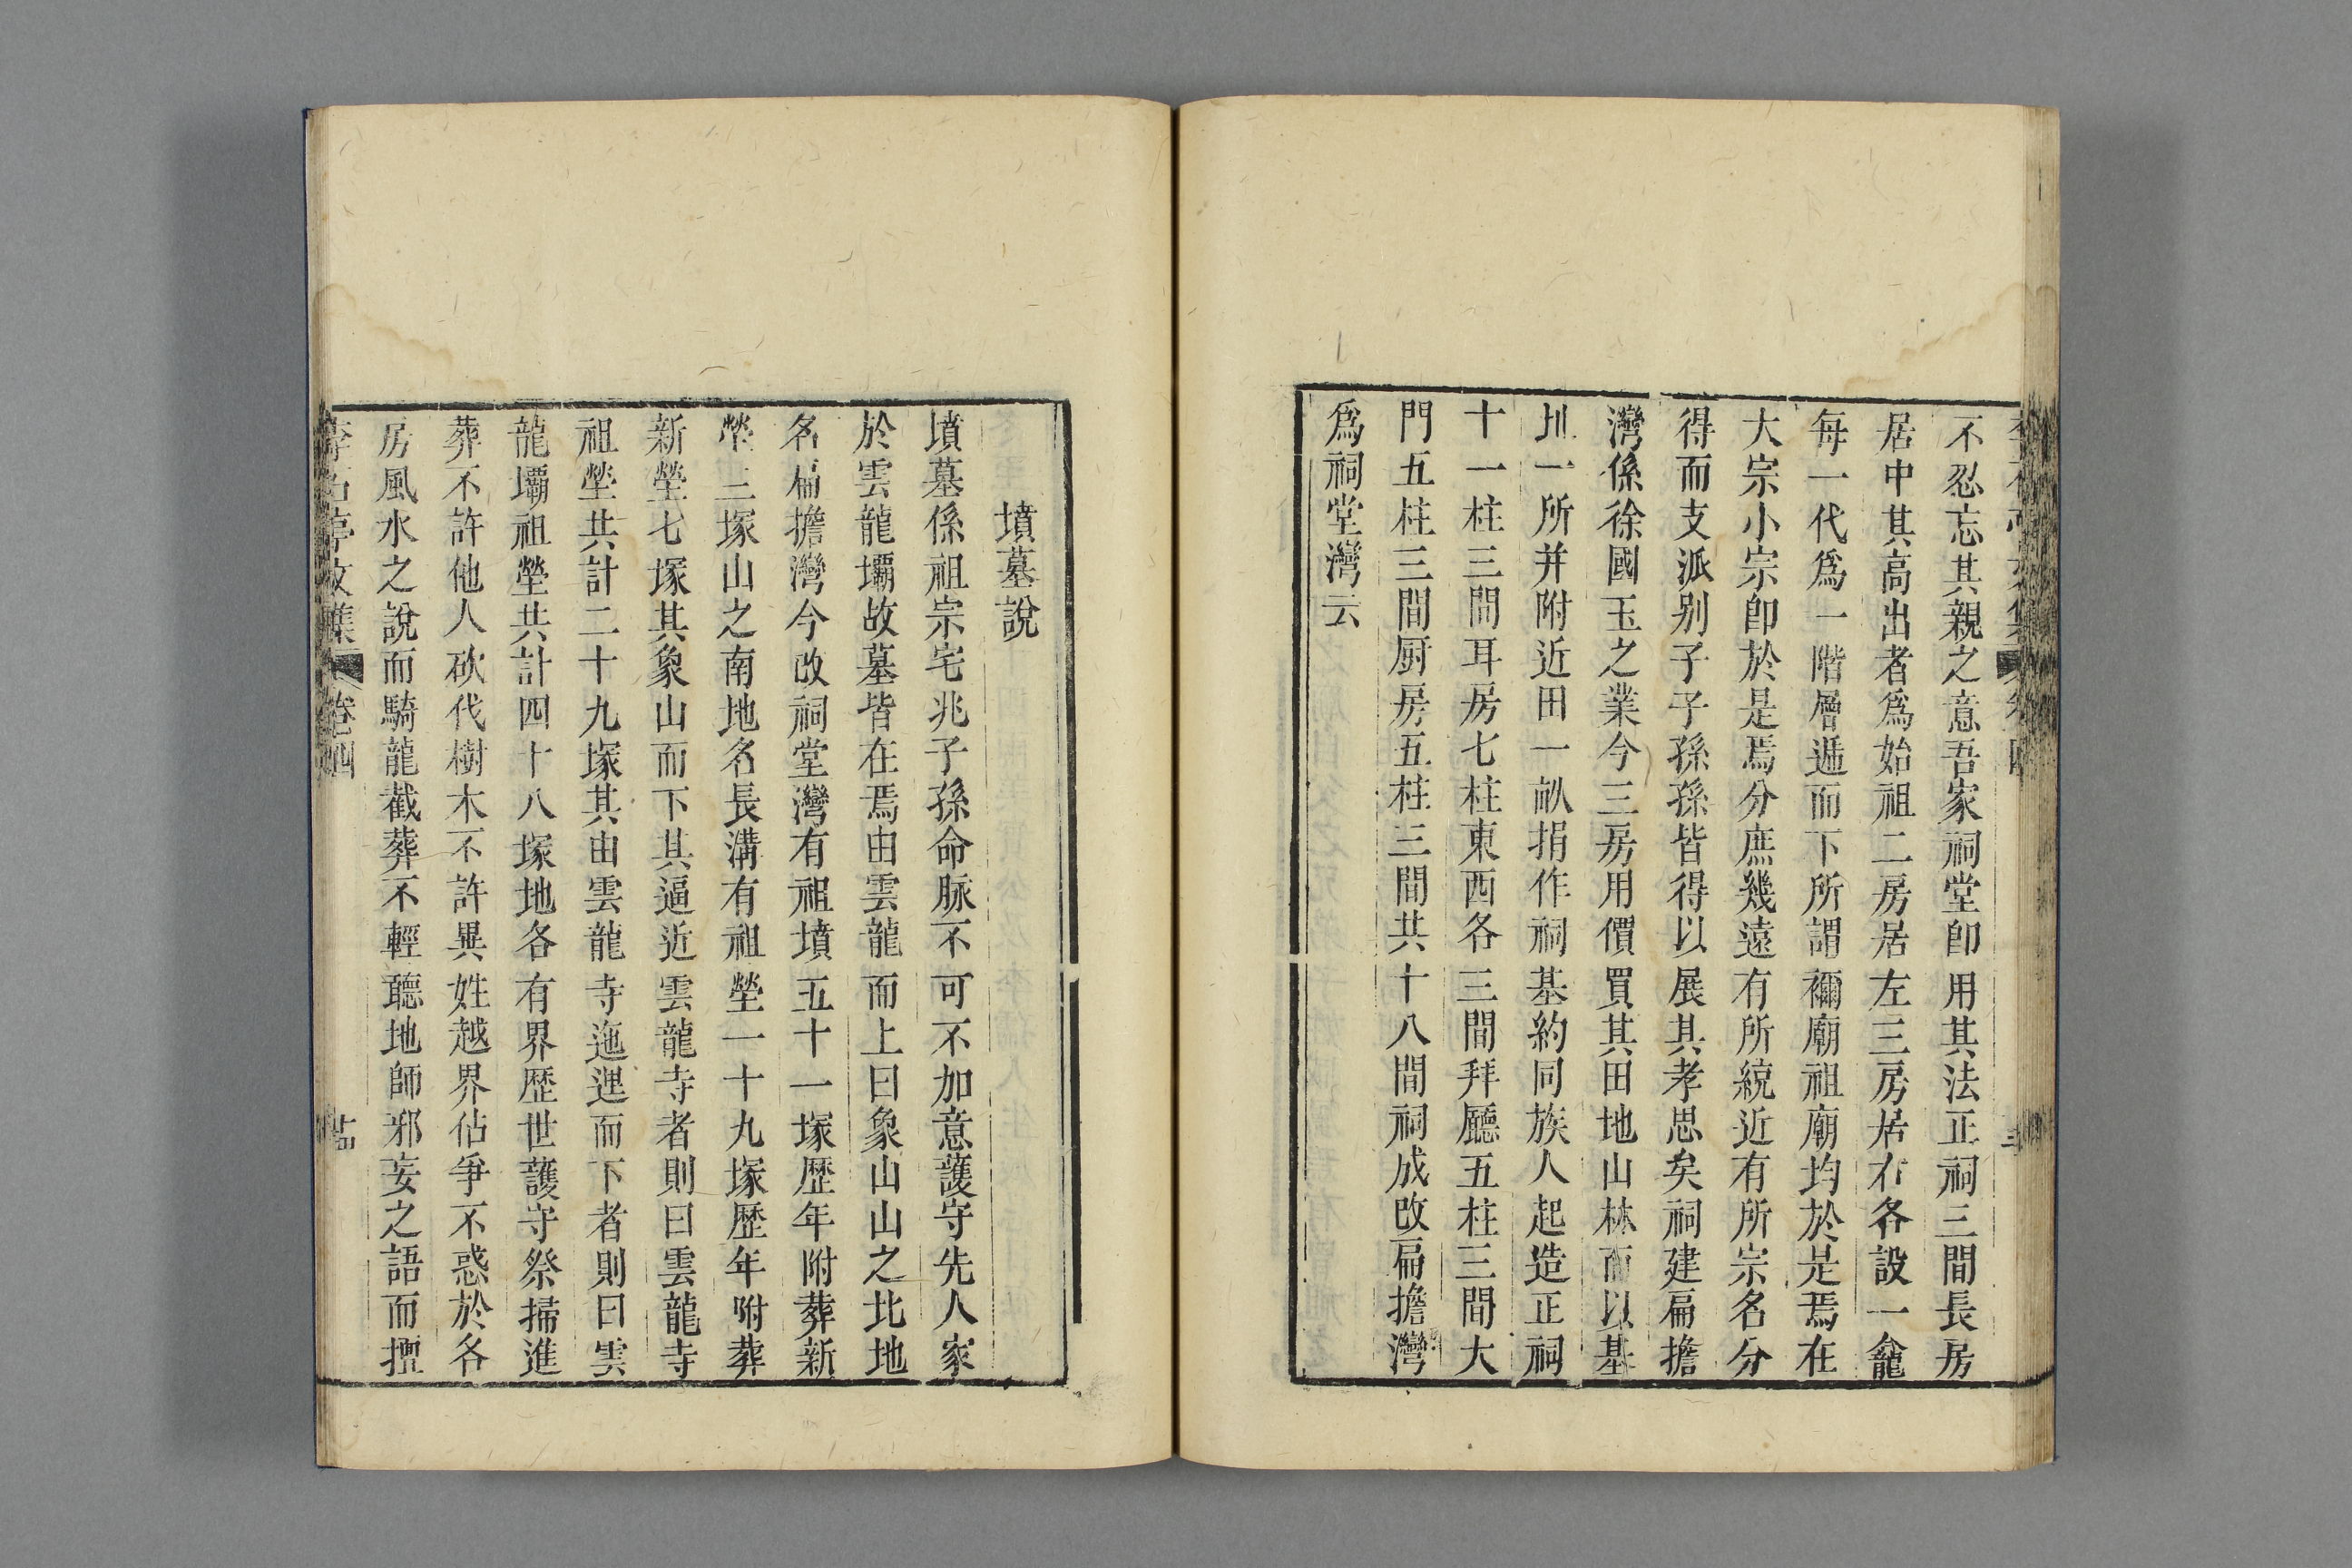 不忍忘其親之意吾家祠堂卽用其法正祠三間長房
居中其高出者爲始祖二房居左三房居右各設一龕
每一代爲一階層遞而下所謂禰廟祖廟均於是焉在
大宗小宗卽於是焉分庶幾遠有所統近有所宗名分
得而支派别子子孫孫皆得以展其孝思矣祠建扁擔
灣係徐國玉之業今三房用價買其田地山林而以基
圳一所并附近田一畝捐作祠基約同族人起造正祠
十一柱三間耳房七柱東西各三間拜廳五柱三間大
門五柱三間厨房五柱三間共十八間祠成改扁擔灣
爲祠堂灣云
墳墓說
墳墓係祖宗宅兆子孫命脉不可不加意護守先人家
於雲龍壩故墓皆在焉由雲龍而上曰象山山之北地
名扁擔灣今改祠堂灣有祖墳五十一塚歷年附葬新
塋三塚山之南地名長溝有祖塋一十九塚歷年附葬
新塋七塚其象山而下其逼近雲龍寺者則曰雲龍寺
祖塋共計二十九塚其由雲龍寺迤𨓦而下者則曰雲
龍壩祖塋共計四十八塚地各有界歷世護守祭掃進
葬不許他人砍伐樹木不許異姓越界佔爭不惑於各
房風水之說而騎龍截葬不輕聽地師邪妄之語而擅
李石亭文集 卷四